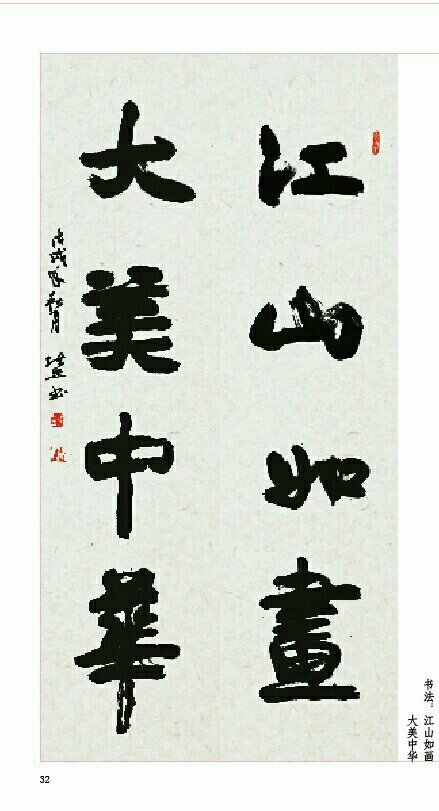 江山如畫
大美中華
戊戌年
书法：江山如画
大美中华
32